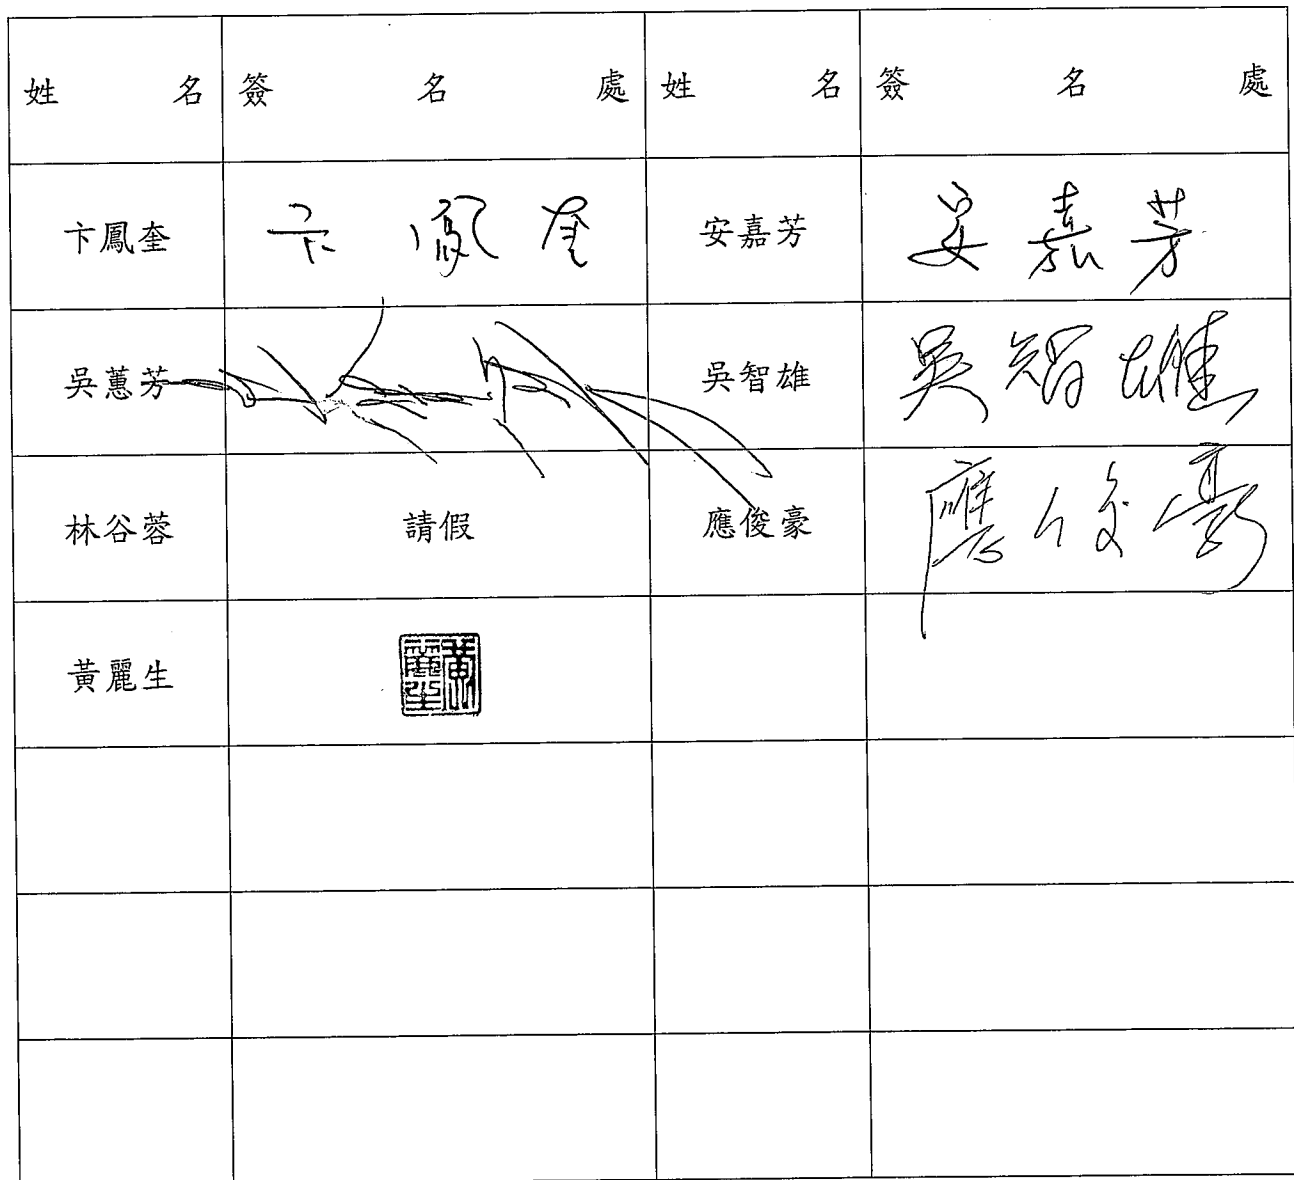 姓名 簽名處 姓名 簽名處
卞鳳奎 卞鳳奎 安嘉芳 安嘉芳
吳蕙芳 吳智雄 吳智雄
林谷蓉 請假 應俊豪 應俊豪
黃麗生 黃麗生